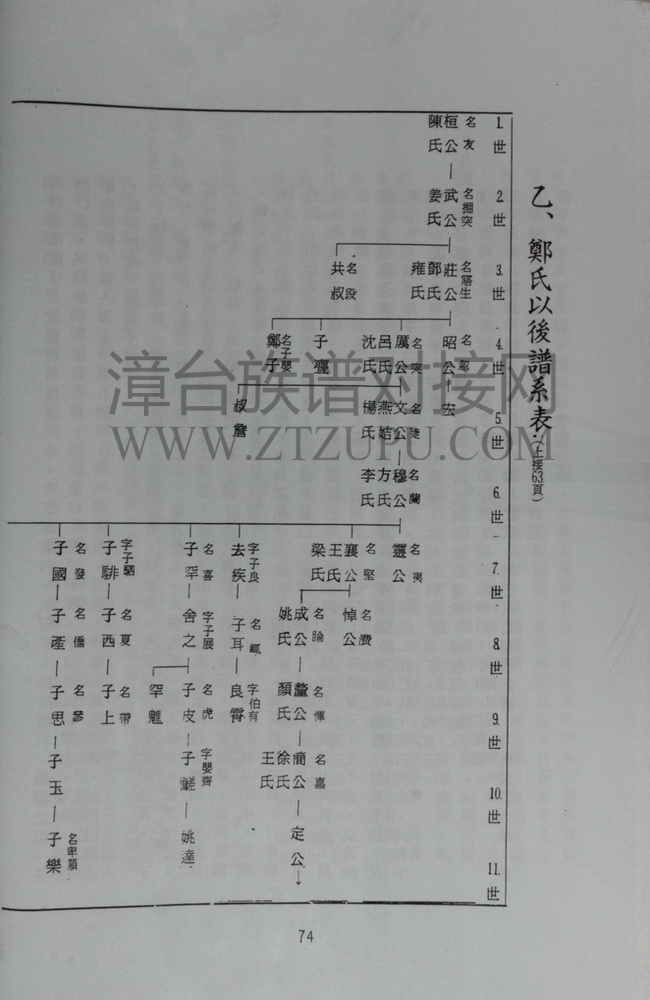 乙、鄭氏以後譜系表：（上接63頁）
1.世
桓公 名友
陳氏
2.世
武公 名掘突
姜氏
3.世
莊公 名寤生
鄧氏
雍氏
共叔 名段
4.世
昭公 名忽
厲公 名突
呂氏
沈氏
子亹
鄭子 名子嬰
5.世
宏
文公 名
燕姞
楊氏
叔詹
6.世
穆公 名蘭
方氏
李氏
7.世
靈公 名夷
襄公 名堅
王氏
梁氏
去疾 字子良
子罕 名喜
子駟 字子
子國 名發
8.世
悼公 名濆
成公 名
姚氏
子耳 名輒
舍之 字子展
子西 名夏
子產 名僑
9.世
釐公 名惲
顏氏
良霄 字伯有
子皮 名虎
罕魋
子上 名帶
子思 名參
10.世
簡公 名嘉
徐氏
王氏
子 字嬰齊
子玉
11.世
定公
姚達
子樂 名卑
74
漳台族谱对接网
WWW.ZTZUPU.COM